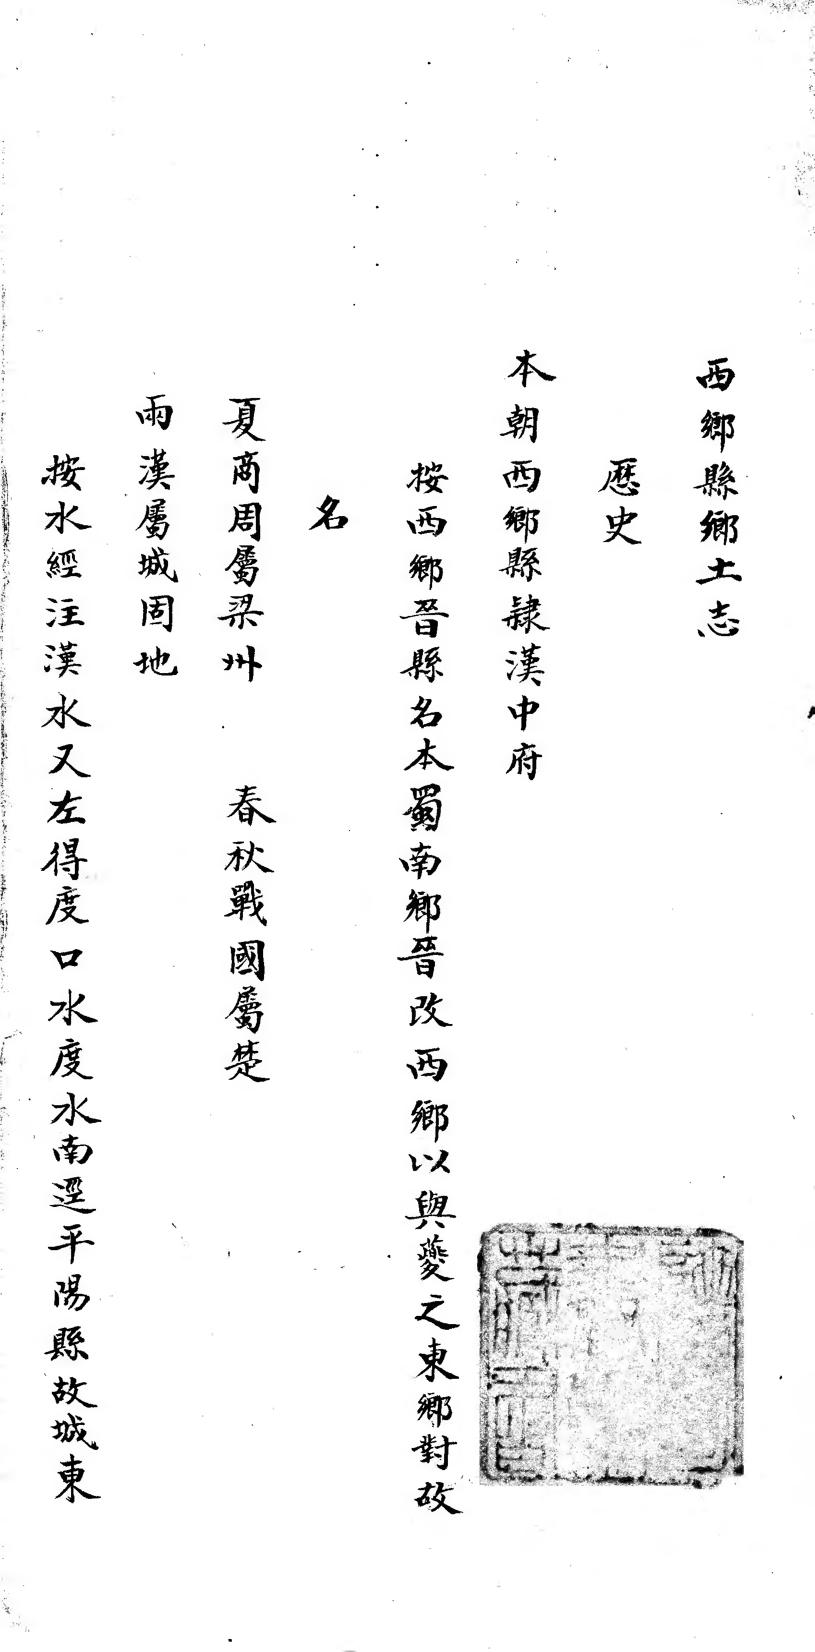 西鄉縣鄉土志
歷史
本朝西鄉縣隷漢中府
按西鄉晉縣名本蜀南鄉晉改西鄉以與夔之東鄉對故
名
夏商周屬梁州　春秋戰國屬楚
兩漢屬城固地
按水經注漢水又左得度口水度水南逕平陽縣故城東